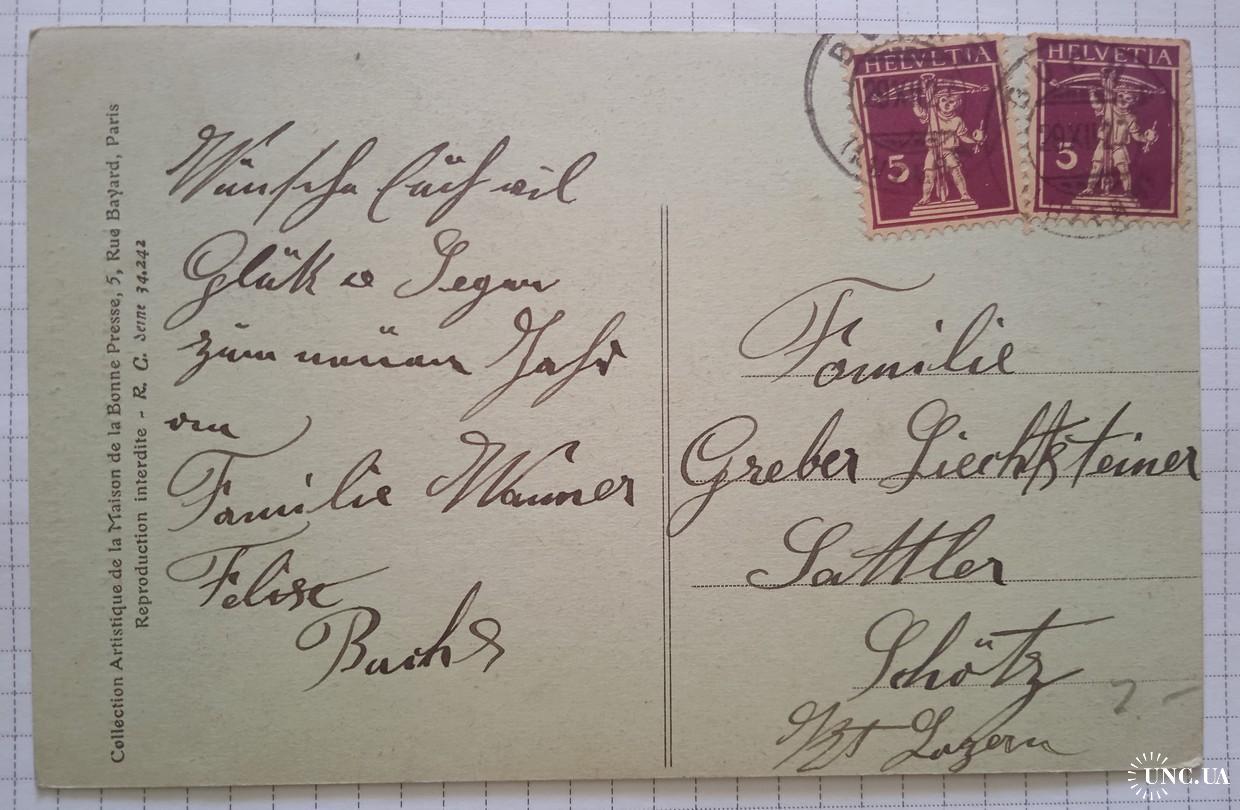 Collection Artistique de la Maison de la Bonne Presse, 5, Rue Bayard, Paris
Reproduction interdite - R. C. Seine 34.242
Wünsche Euch vil
Glük u Segen
zum neuen Jahr
Familie Wanner
Felise
HELVETIA
5
HELVETIA
5
Familie
Greber Liechtsteiner
Sattler
Schötz
Kt Luzern
UNC.UA